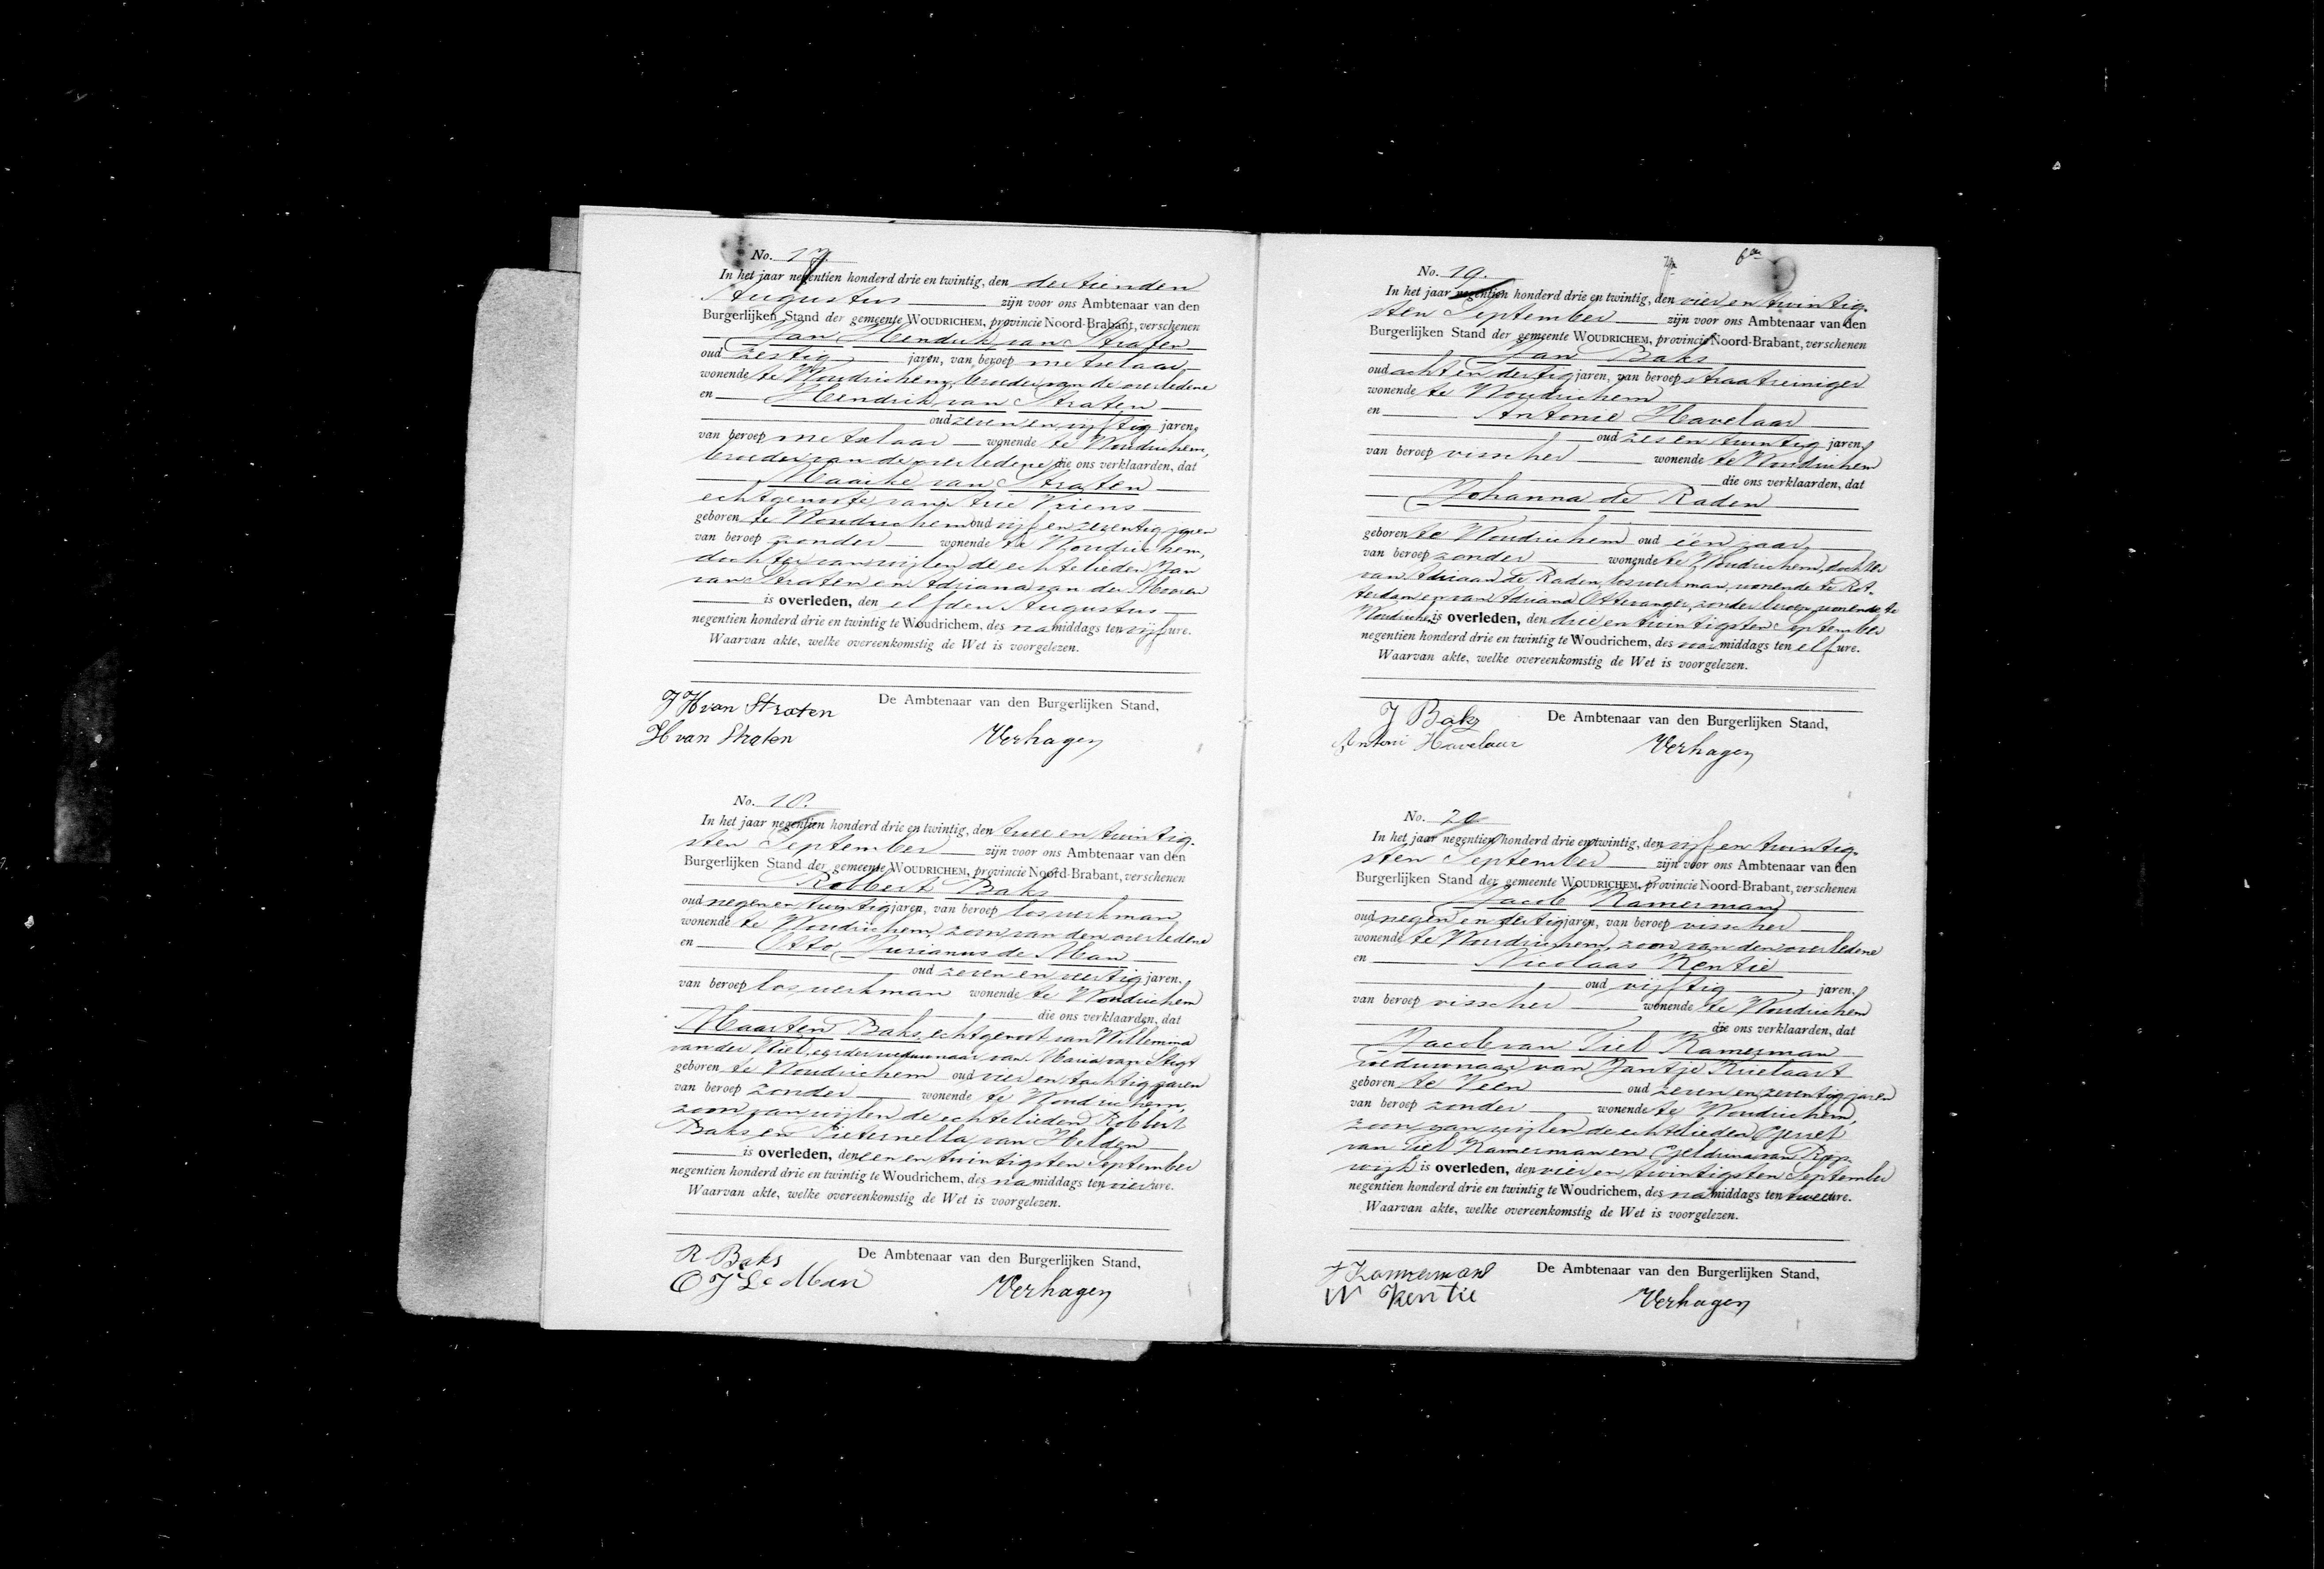 No. 17.
In het jaar negentien honderd drie en twintig, den dertienden
Augustus zijn voor ons Ambtenaar van den
Burgerlijken Stand der gemeente WOUDRICHEM, provincie Noord-Brabant, verschenen
Jan Hendrik van Straten
oud zestig jaren, van beroep metselaar
wonende te Woudrichem, broeder van de overledene
en Hendrik van Straten
oud zeven en vijftig jaren,
van beroep metselaar wonende te Woudrichem,
broeder van de overledene die ons verklaarden, dat
Maaike van Straten
echtgenoote van Arie Vriens
geboren te Woudrichem oud vijf en zeventig jaren
van beroep zonder wonende te Woudrichem,
dochter van wijlen de echtelieden Jan
van Straten en Adriana van der Mooren
is overleden, den elfden Augustus
negentien honderd drie en twintig te Woudrichem, des namiddags ten vijf ure.
Waarvan akte, welke overeenkomstig de Wet is voorgelezen.
J H van Straten De Ambtenaar van den Burgerlijken Stand,
H van Straten Verhagen
No. 18.
In het jaar negentien honderd drie en twintig, den twee en twintig-
sten September zijn voor ons Ambtenaar van den
Burgerlijken Stand der gemeente WOUDRICHEM, provincie Noord-Brabant, verschenen
Robbert Baks
oud negen en twintig jaren, van beroep loswerkman
wonende te Woudrichem, zoon van den overledene
en Otto Jurianus de Man
oud zeven en veertig jaren,
van beroep loswerkman wonende te Woudrichem
die ons verklaarden, dat
Maarten Baks, echtgenoot van Willemina
van der Wiel, eerder weduwnaar van Maria van Stigt
geboren te Woudrichem oud vier en tachtig jaren
van beroep zonder wonende te Woudrichem,
zoon van wijlen de echtelieden Robbert
Baks en Pieternella van Helden
is overleden, den een en twintigsten September
negentien honderd drie en twintig te Woudrichem, des namiddags ten vier ure.
Waarvan akte, welke overeenkomstig de Wet is voorgelezen.
R Baks De Ambtenaar van den Burgerlijken Stand,
O J de Man Verhagen
No. 19.
In het jaar negentien honderd drie en twintig, den vier en twintig-
sten September zijn voor ons Ambtenaar van den
Burgerlijken Stand der gemeente WOUDRICHEM, provincie Noord-Brabant, verschenen
Jan Baks
oud acht en dertig jaren, van beroep straatreiniger
wonende te Woudrichem
en Antonie Havelaar
oud zes en twintig jaren,
van beroep visscher wonende te Woudrichem
die ons verklaarden, dat
Johanna de Raden
geboren te Woudrichem oud één jaar
van beroep zonder wonende te Woudrichem, dochter
van Adriaan de Raden, loswerkman, wonende te Rot-
terdam en van Adriana Ottevanger, zonder beroep wonende te
Woudrichem is overleden, den drie en twintigsten September
negentien honderd drie en twintig te Woudrichem, des voormiddags ten elf ure.
Waarvan akte, welke overeenkomstig de Wet is voorgelezen.
J Baks De Ambtenaar van den Burgerlijken Stand,
Antoni Havelaar Verhagen
No. 20
In het jaar negentien honderd drie en twintig, den vijf en twintig-
sten September zijn voor ons Ambtenaar van den
Burgerlijken Stand der gemeente WOUDRICHEM, provincie Noord-Brabant, verschenen
Jacob Kamerman
oud negen en dertig jaren, van beroep visscher
wonende te Woudrichem, zoon van den overledene
en Nicolaas Kentie
oud vijftig jaren,
van beroep visscher wonende te Woudrichem
die ons verklaarden, dat
Jacob van Tiel Kamerman
weduwnaar van Jantje Krielaart
geboren te Veen oud zeven en zeventig jaren
van beroep zonder wonende te Woudrichem,
zoon van wijlen de echtelieden Gerret
van Tiel Kamerman en Geldrina van Rijs-
wijk is overleden, den vier en twintigsten September
negentien honderd drie en twintig te Woudrichem, des namiddags ten twee ure.
Waarvan akte, welke overeenkomstig de Wet is voorgelezen.
J Kamerman De Ambtenaar van den Burgerlijken Stand,
N Kentie Verhagen